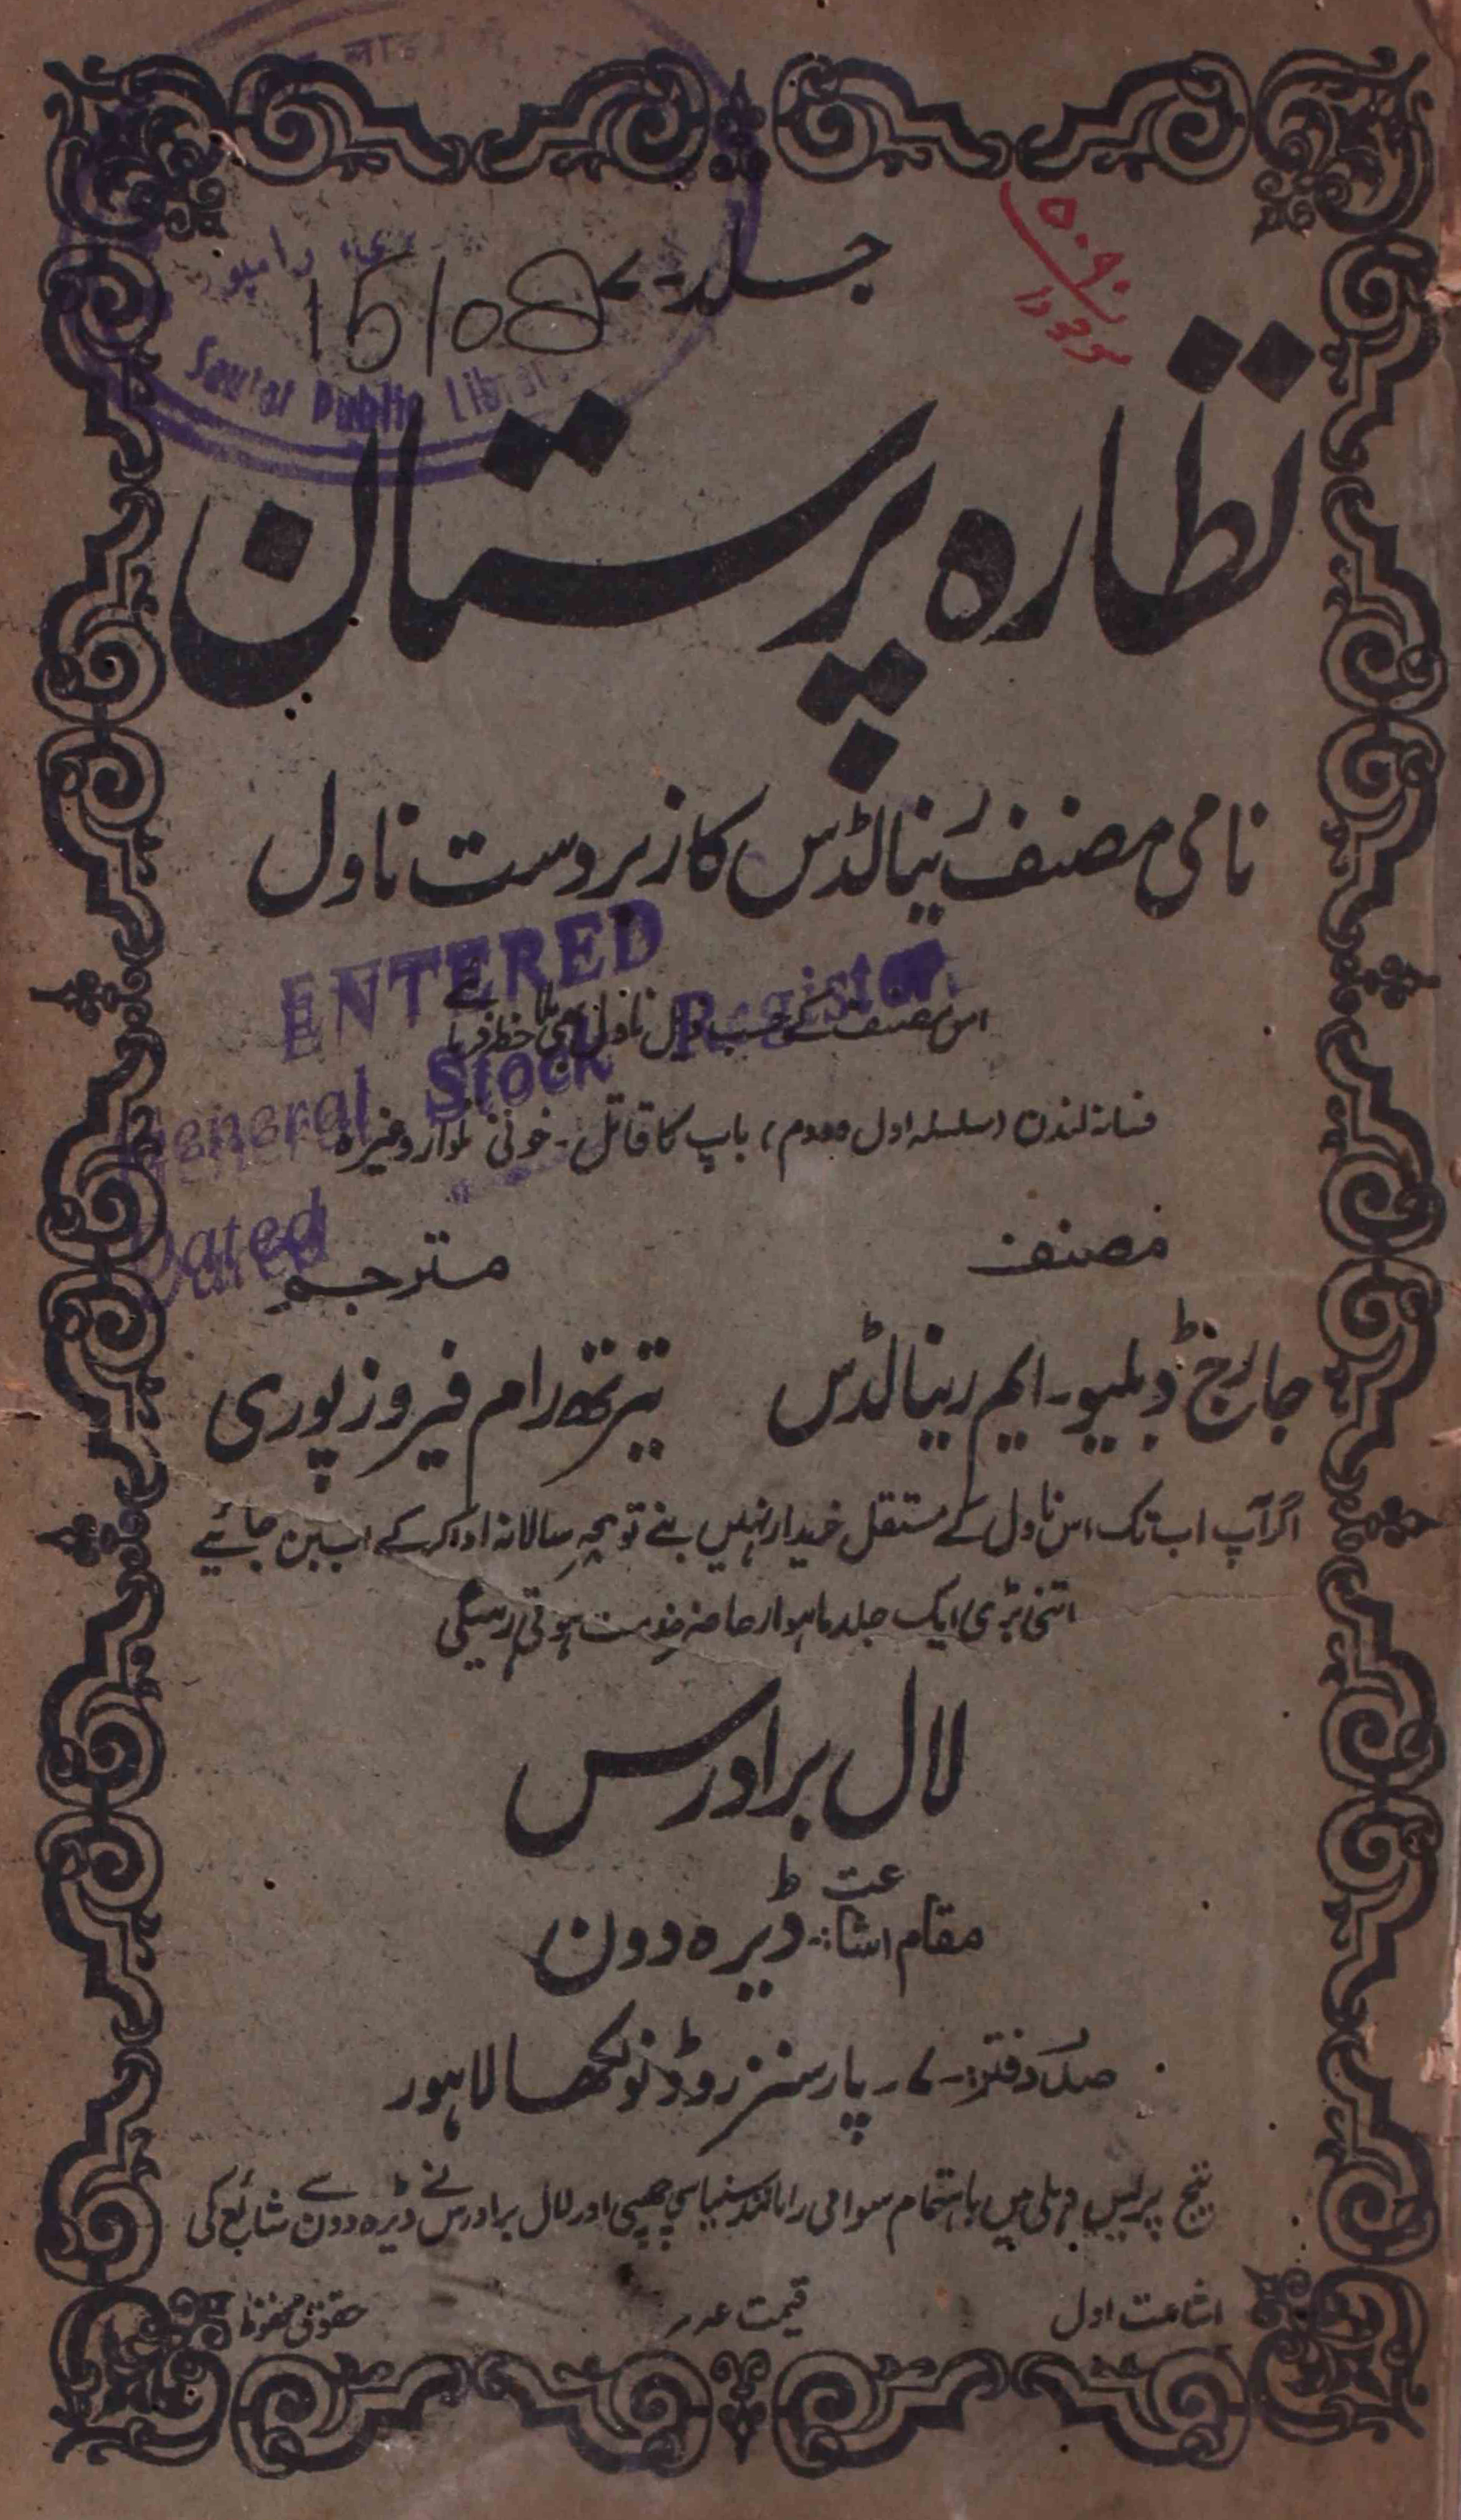 جلد - ۷
15108
رامپور
Saulat Public Library
نظارہ پرستان
نامی مصنف رینالڈس کا زبردست ناول
ENTERED
اس مصنف کے حسب ذیل ناول بھی ملاحظہ فرمائیے
General Stock Register
فسانہ لندن (سلسلہ اول ودوم) باپ کا قاتل - خونی تلوار وغیرہ
Dated
مصنف
جارج ڈبلیو - ایم رینالڈس
مترجم
تیرتھ رام فیروزپوری
اگر آپ اب تک اس ناول کے مستقل خریدار نہیں بنے تو سالانہ ادا کر کے اب بن جائیے
اتنی بڑی ایک جلد ماہوار حاضر خدمت ہوتی رہیگی
لال برادرس
مقام اشاعت :- ڈیرہ دون
صدر دفتر :- ۷ - پارسنز روڈ نولکھا لاہور
تیج پریس دہلی میں باہتمام سوامی راماننڈ سنیاسی چھپی اور لال برادرس نے ڈیرہ دون سے شائع کی
اشاعت اول
قیمت عہ ر
حقوق محفوظ